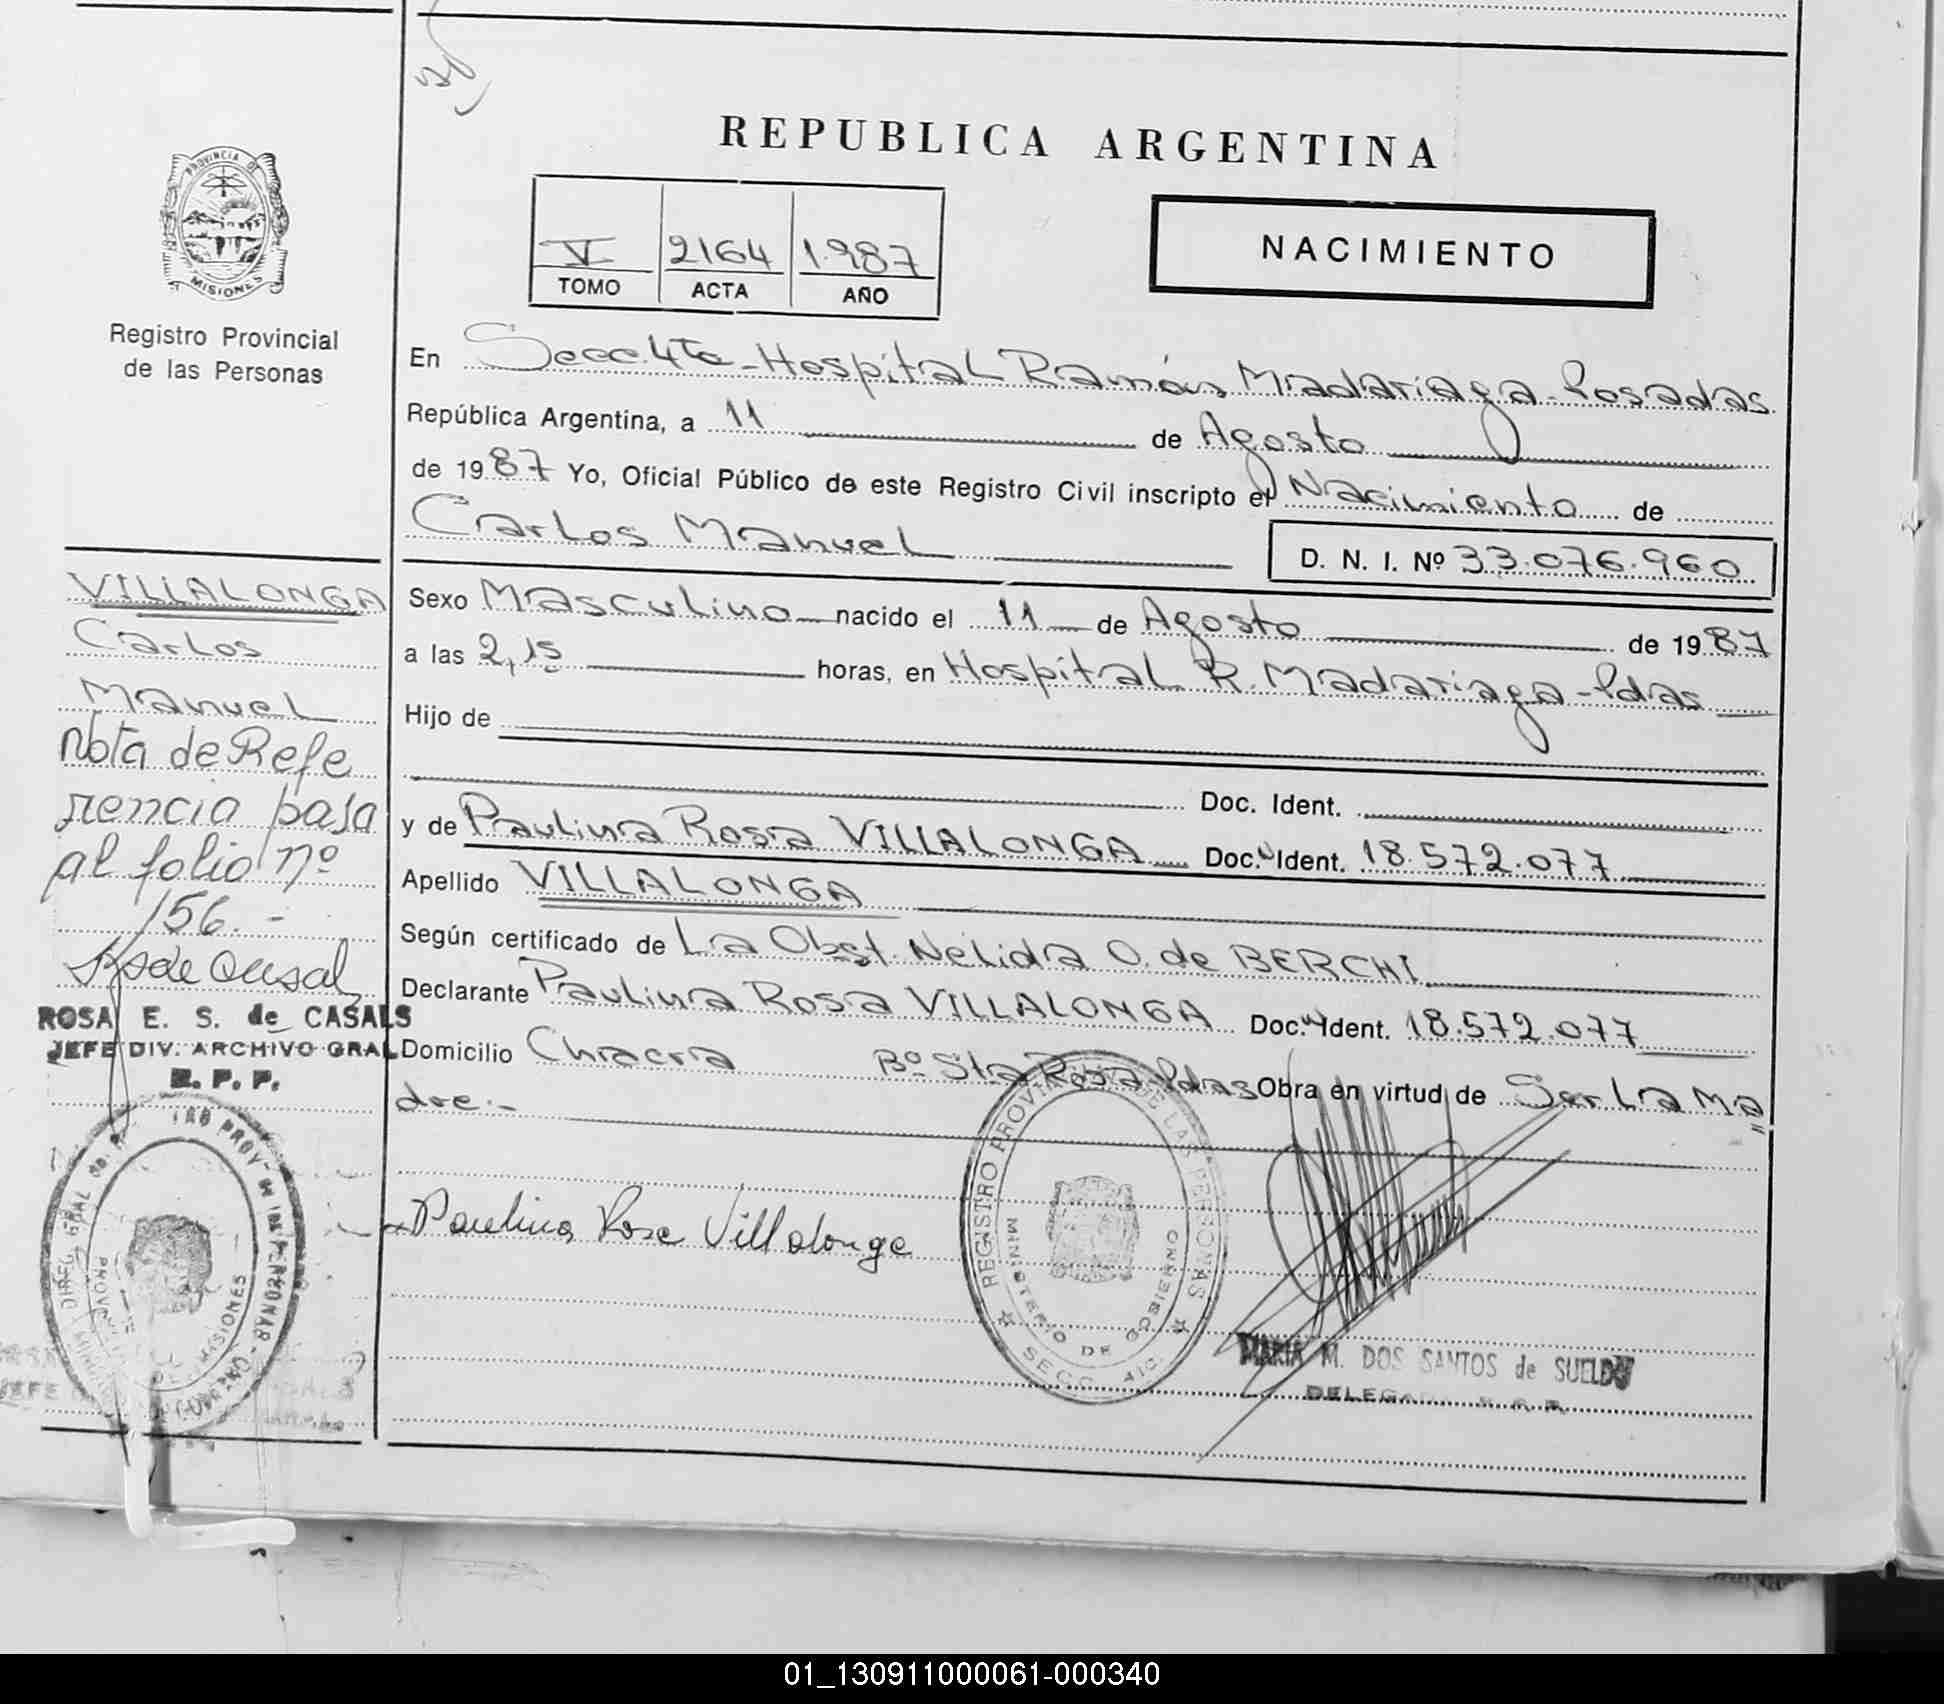 REPUBLICA ARGENTINA
PROVINCIA DE
MISIONES
Registro Provincial
de las Personas
V 2164 1.987
TOMO ACTA AÑO
NACIMIENTO
En Secc.4ta-Hospital Ramón Madariaga-Posadas
República Argentina, a 11 de Agosto
de 1987 Yo, Oficial Público de este Registro Civil inscripto el Nacimiento de
Carlos Manuel
D. N. I. Nº 33.076.960
Sexo Masculino nacido el 11 de Agosto de 1987
a las 2,15 horas, en Hospital R. Madariaga-Pdas
Hijo de
Doc. Ident.
y de Paulina Rosa VILLALONGA Doc. Ident. 18.572.077
Apellido VILLALONGA
Según certificado de La Obst. Nelida O. de BERCHI
Declarante Paulina Rosa VILLALONGA Doc. Ident. 18.572.077
Domicilio Chacra Bº Sta Rosa-Pdas Obra en virtud de Ser La Ma
dre.-
Paulina Rosa Villalonga
REGISTRO PROVINCIAL DE LAS PERSONAS
MINISTERIO DE GOBIERNO
SECC.
MARIA M. DOS SANTOS de SUELDO
DELEGADA
VILLALONGA
Carlos
Manuel
Nota de Refe
rencia pasa
al folio nº
156.-
ROSA E. S. de CASALS
JEFE DIV. ARCHIVO GRAL
R. P. P.
MISIONES
01_130911000061-000340